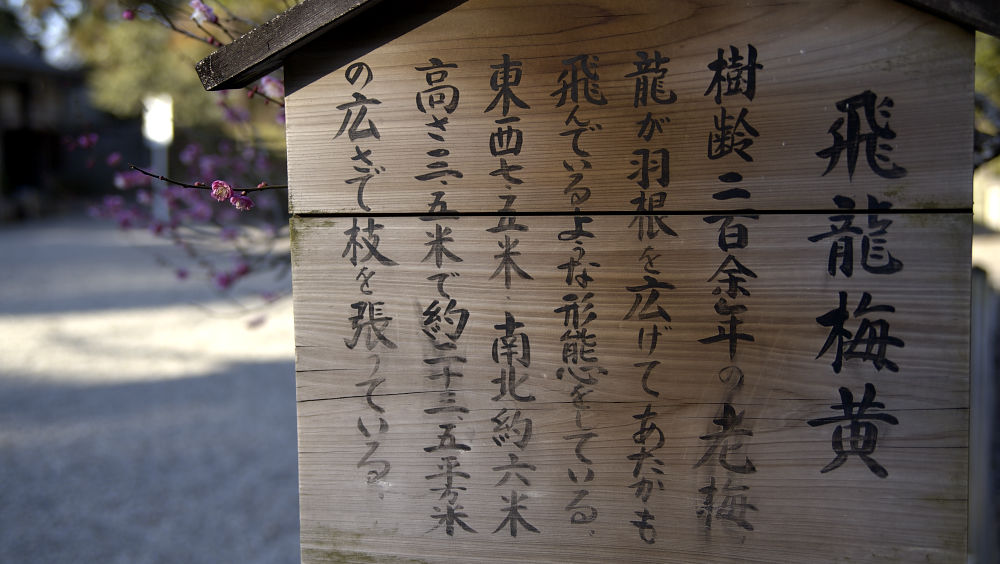 飛龍梅黄
樹齢二百余年の老梅、
龍が羽根を広げてあたかも
飛んでいるような形態をしている、
東西七、五米、南北約六米
高さ三、五米で約二十三、五平方米
の広さで枝を張っている、